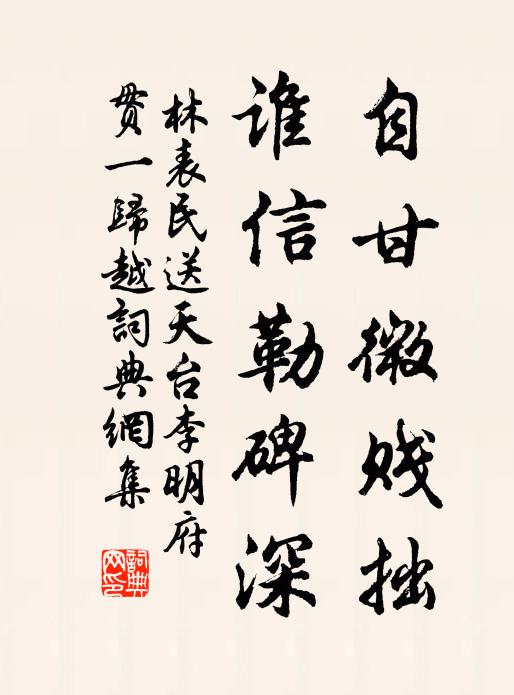 自甘微贱拙
谁信勒碑深
林表民送天台李明府
贯一歸越詞典網集
詞典網印